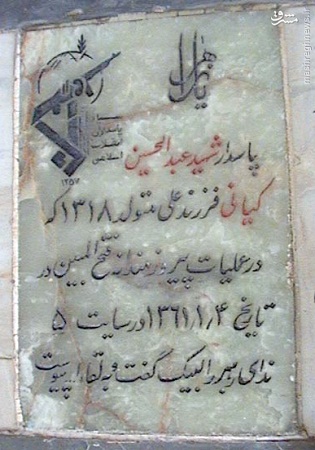 مشرق
mashreghnews.ir
یا زهرا
سپاه
پاسداران
انقلاب
اسلامی
۱۳۵۷
پاسدار شهید عبدالحسین
کیانی فرزند علی متولد ۱۳۱۸ که
در عملیات پیروزمندانه فتح المبین در
تاریخ ۱۳۶۱/۱/۴ در سایت ۵
ندای رهبر را لبیک گفت و به لقاءا... پیوست